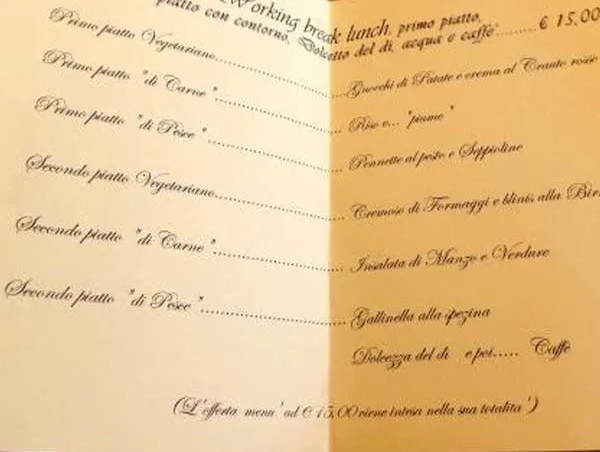 Working break lunch, primo piatto,
piatto con contorno, Dolcetto del dì, acqua e caffè.........€ 15,00
Primo piatto Vegetariano.......................Gnocchi di Patate e crema al Crauto rosso
Primo piatto "di Carne".......................... Riso e... "piume"
Primo piatto "di Pesce"............................ Pennette al pesto e Seppioline
Secondo piatto Vegetariano....................... Cremoso di Formaggi e blinis alla
Secondo piatto "di Carne"......................... Insalata di Manzo e Verdure
Secondo piatto "di Pesce".............................. Gallinella alla spezina
Dolcezza del dì e poi..... Caffè
(L'offerta menu' ad € 15,00 viene intesa nella sua totalita')